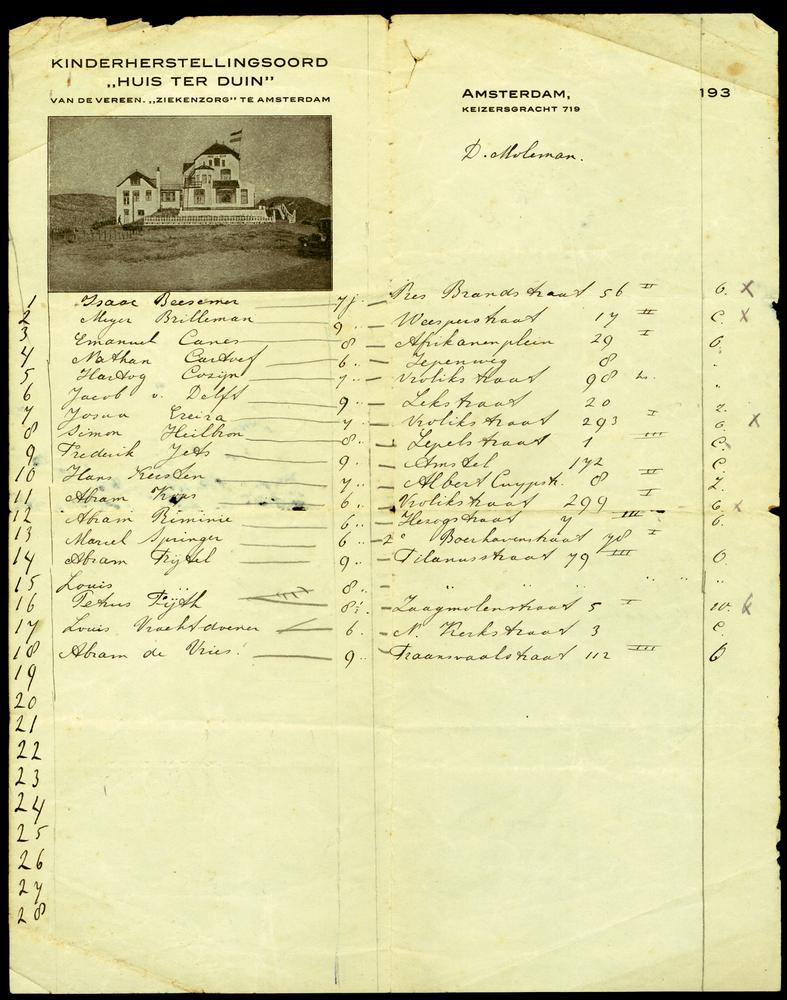 KINDERHERSTELLINGSOORD
„HUIS TER DUIN”
VAN DE VEREEN. „ZIEKENZORG” TE AMSTERDAM
AMSTERDAM, 193
KEIZERSGRACHT 719
D. Moleman.
1 Isaac Beesemer 7 j. — Pres Brandstraat 56 II O. X
2 Meyer Brilleman 9 .. — Weesperstraat 17 II C. X
3 Emanuel Canes 8 .. — Afrikanerplein 29 I O.
4 Nathan 6 .. — Iepenweg 8 "
5 Hartog Cozijn 7 .. — Vrolikstraat 98 "
6 Jacob v. Delft 9 .. — Lekstraat 20 Z.
7 Josua Ereira 7 — Vroliksstraat 293 I O. X
8 Simon Heilbron 8 .. — Lepelstraat 1 III C.
9 Frederik Jets 9 .. — Amstel 172 C.
10 Hans Keesten 7 .. — Albert Cuypstr. 8 II Z.
11 Abram Kops 6 .. — Vrolikstraat 299 I O. X
12 Abram Riminie 6 .. — Herzogstraat 4 III O.
13 Marcel Springer 6 .. — 2e Boerhavenstraat 78 I
14 Abram Trijtel 9 .. — Tilanusstraat 79 III O.
15 Louis 8 .. — " " " " "
16 Petrus Tijth 8 j. — Zaagmolenstraat 5 I W. X
17 Louis Vrachtdoener 6 .. — N. Kerkstraat 3 C.
18 Abram de Vries. 9 .. — Transvaalstraat 112 III O
19
20
21
22
23
24
25
26
27
28